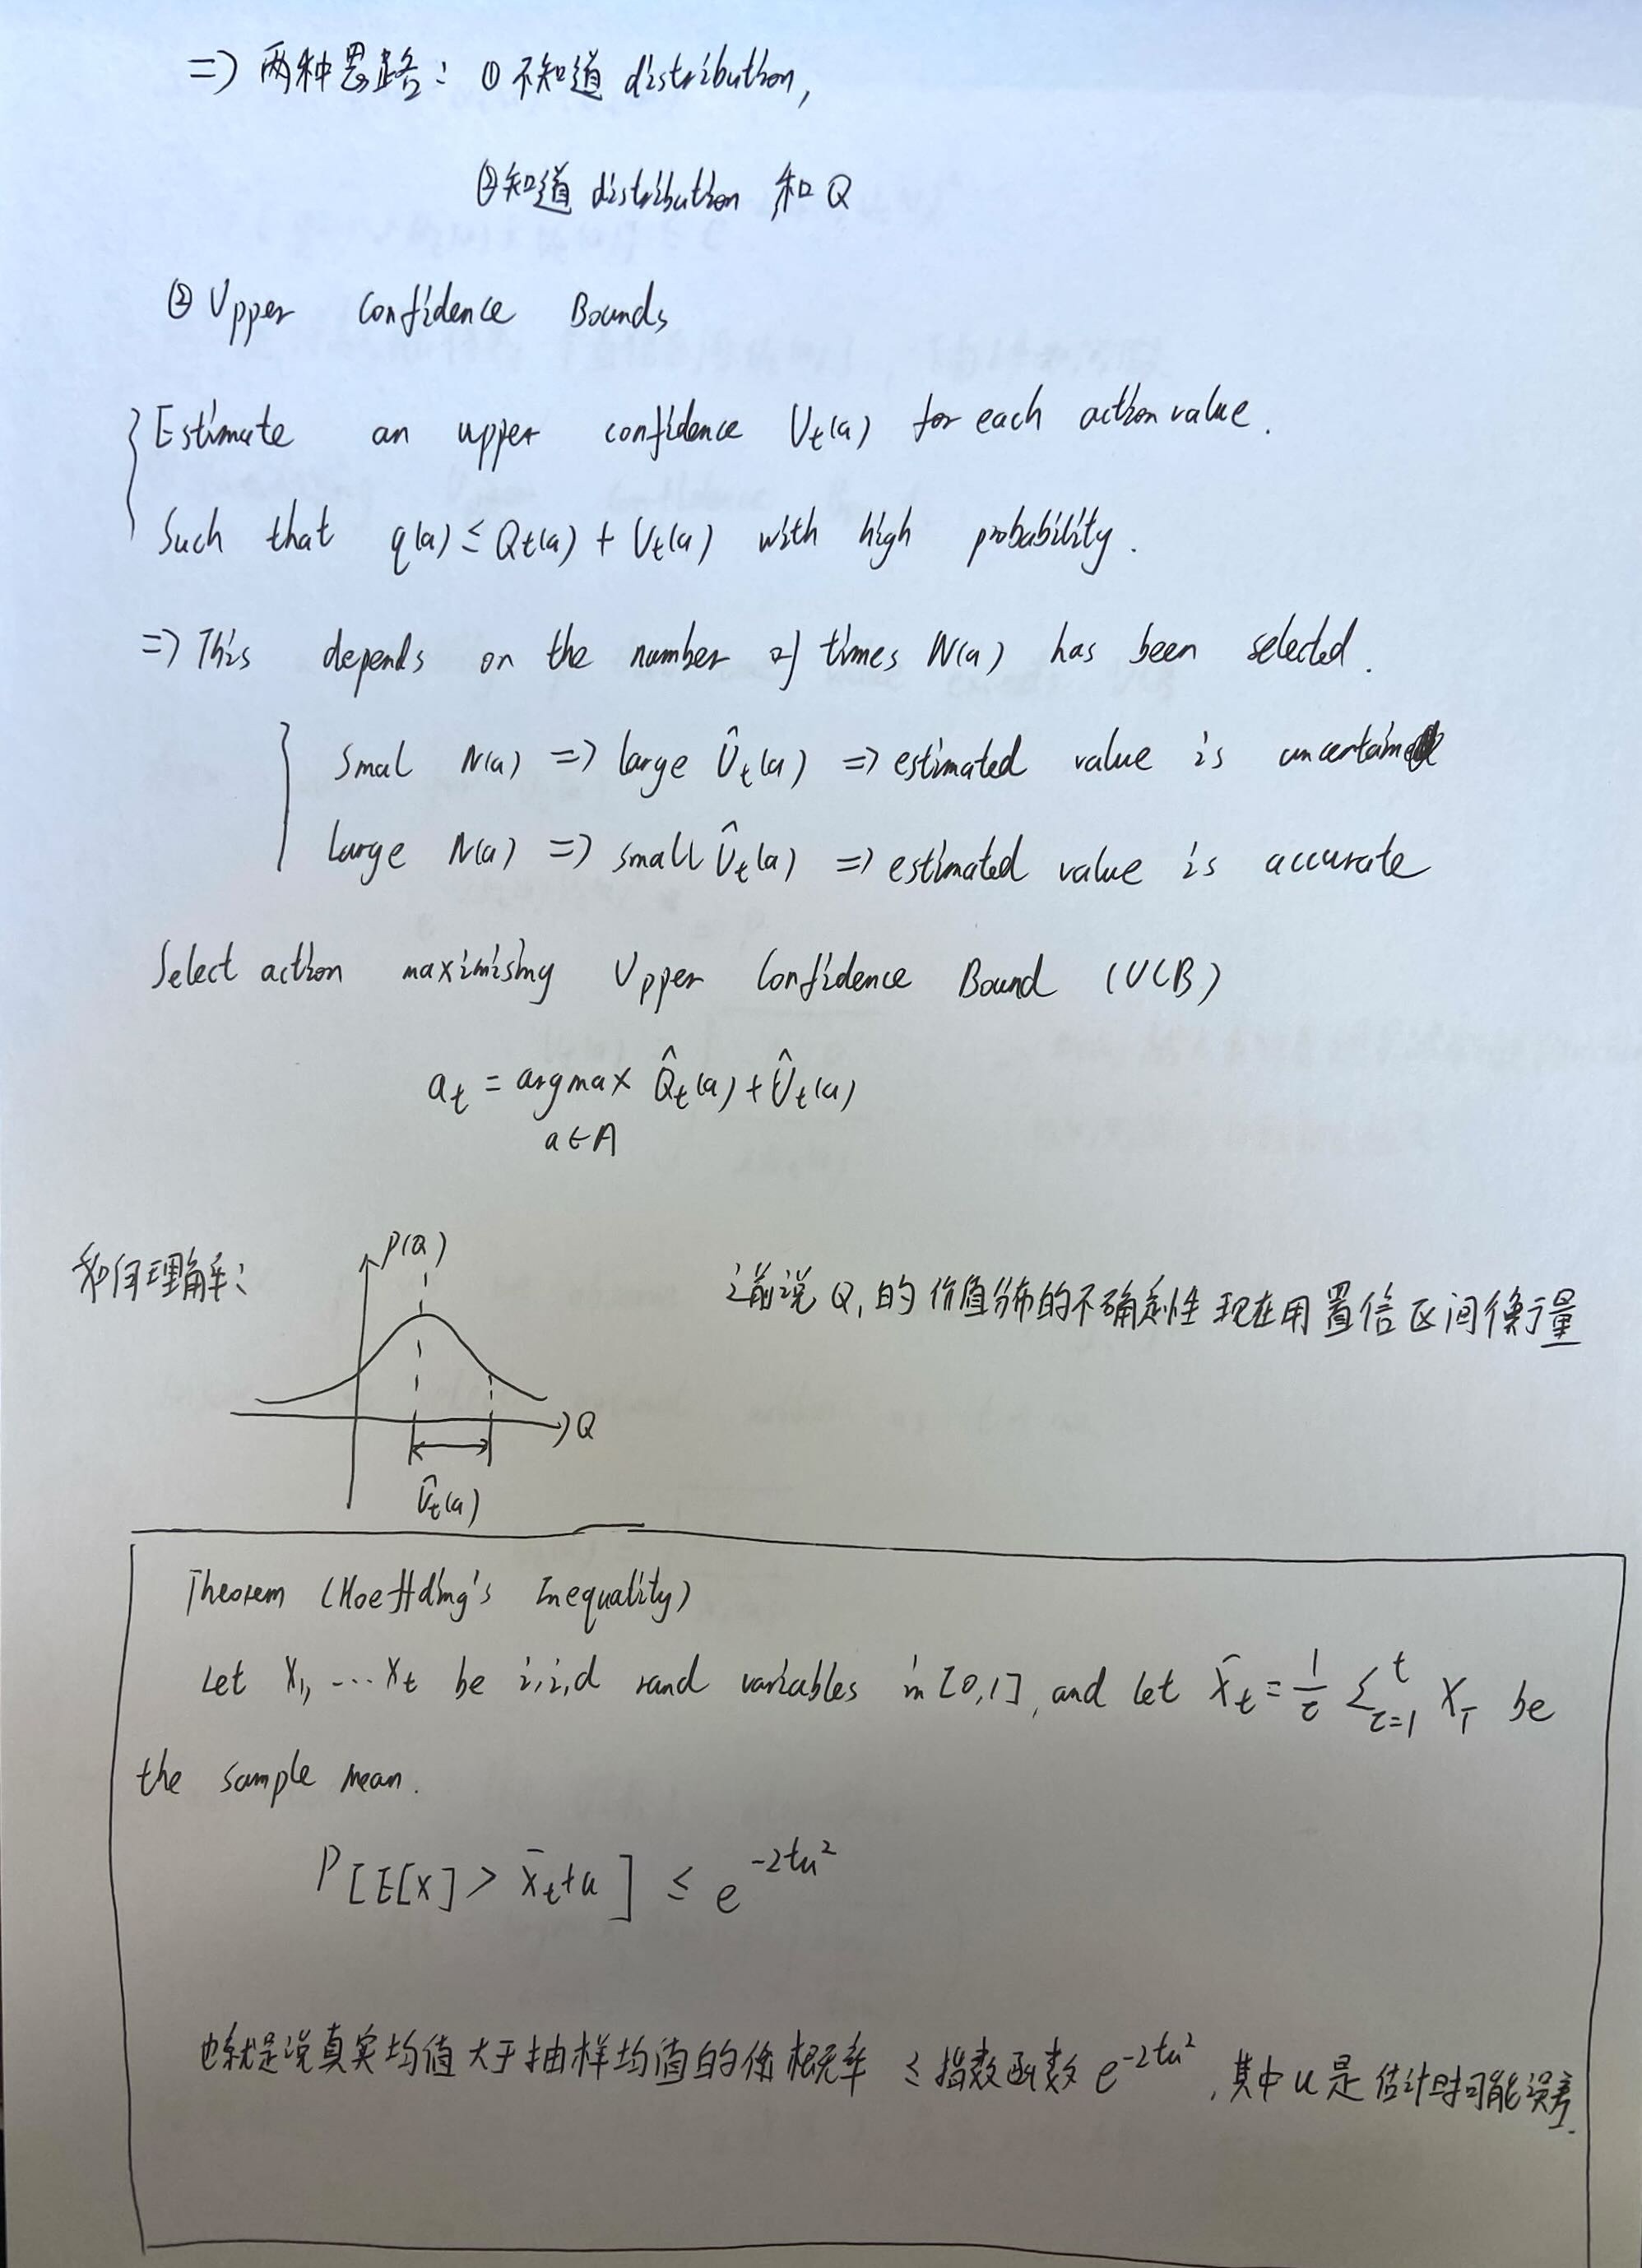 => 两种思路: ① 不知道 distribution,
② 知道 distribution 和 Q
② Upper Confidence Bounds
Estimate an upper confidence Ut(a) for each action value.
Such that q(a) ≤ Qt(a) + Ut(a) with high probability.
=> This depends on the number of times N(a) has been selected.
Smal N(a) => large Ût(a) => estimated value is uncertain
large N(a) => small Ût(a) => estimated value is accurate
Select action maximising Upper Confidence Bound (UCB)
at = argmax Q̂t(a) + Ût(a)
a∈A
如何理解:
P(Q)
之前说 Q, 的价值分布的不确定性 现在用置信区间衡量
Q
Ût(a)
Theorem (Hoeffding's Inequality)
Let X1, ... Xt be i,i,d rand variables in [0,1], and let X̄t = 1/τ Σ_{τ=1}^t Xτ be
the sample mean.
P[E[X] > X̄t+u] ≤ e^{-2tu²}
也就是说真实均值大于抽样均值的 概率 ≤ 指数函数 e^{-2tu²}, 其中 u 是估计时可能误差.